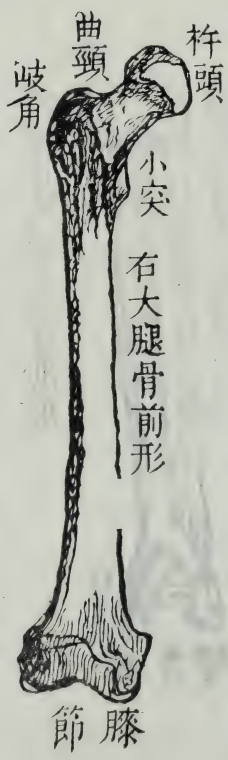 杵頭
曲頸
歧角
小突
右大腿骨前形
膝節